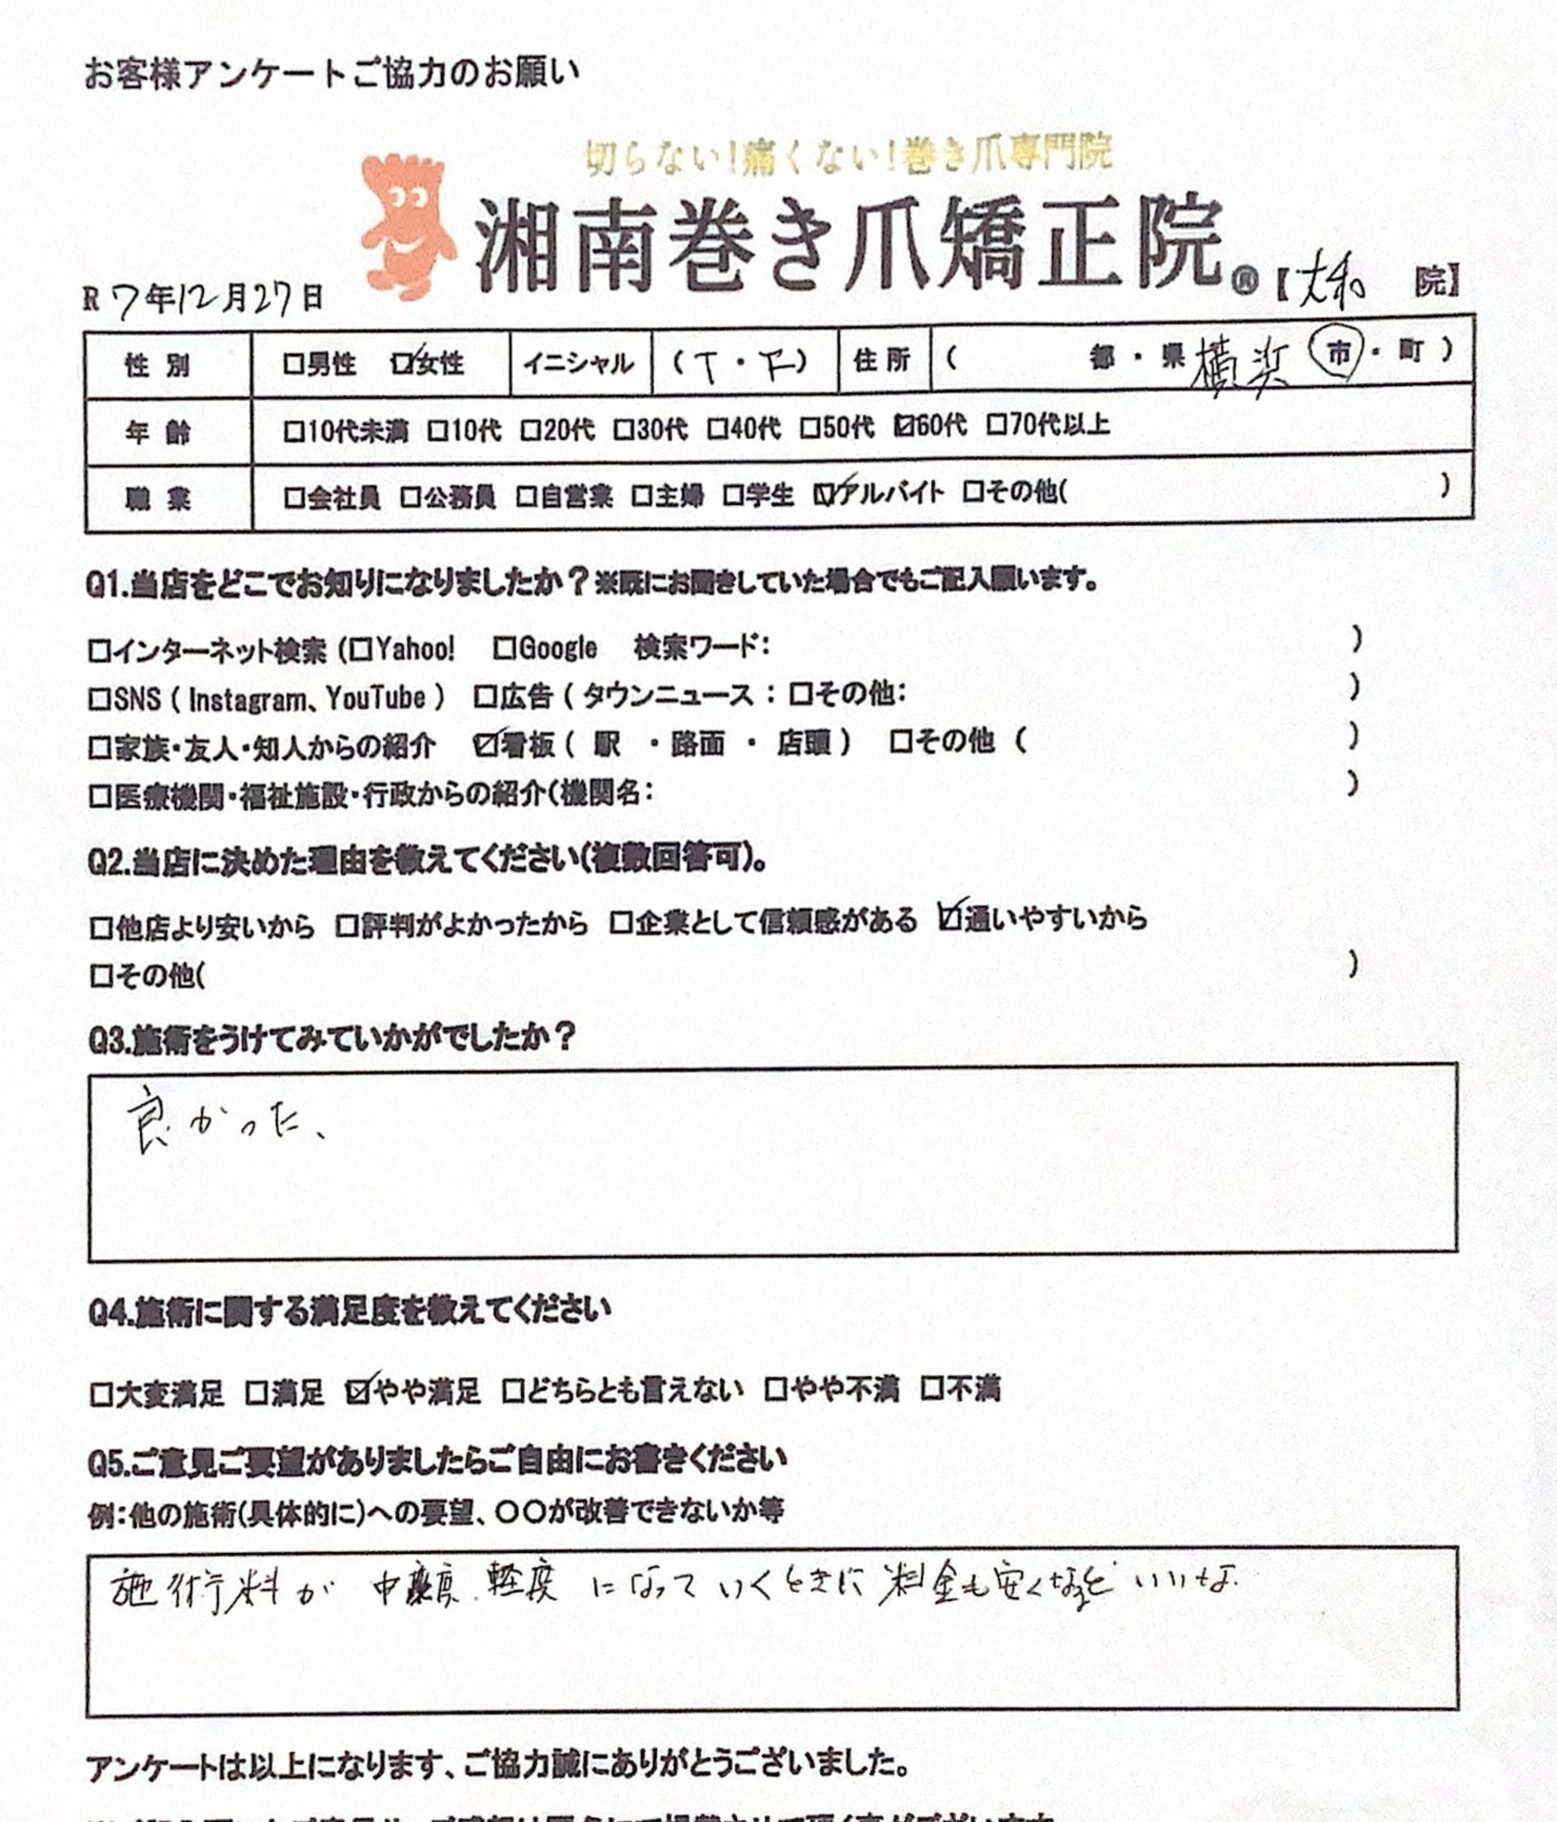 お客様アンケートご協力のお願い
切らない!痛くない!巻き爪専門院
湘南巻き爪矯正院®【大和 院】
R7年12月27日
性別 □男性 ☑女性 イニシャル (T・F) 住所 ( 都・県 横浜 市・町 )
年齢 □10代未満 □10代 □20代 □30代 □40代 □50代 ☑60代 □70代以上
職業 □会社員 □公務員 □自営業 □主婦 □学生 ☑アルバイト □その他( )
Q1.当店をどこでお知りになりましたか？※既にお聞きしていた場合でもご記入願います。
□インターネット検索 (□Yahoo! □Google 検索ワード: )
□SNS ( Instagram、YouTube ) □広告 ( タウンニュース : □その他: )
□家族・友人・知人からの紹介 ☑看板 ( 駅 ・ 路面 ・ 店頭 ) □その他 ( )
□医療機関・福祉施設・行政からの紹介(機関名: )
Q2.当店に決めた理由を教えてください(複数回答可)。
□他店より安いから □評判がよかったから □企業として信頼感がある ☑通いやすいから
□その他( )
Q3.施術をうけてみていかがでしたか？
良かった、
Q4.施術に関する満足度を教えてください
□大変満足 □満足 ☑やや満足 □どちらとも言えない □やや不満 □不満
Q5.ご意見ご要望がありましたらご自由にお書きください
例：他の施術(具体的に)への要望、〇〇が改善できないか等
施術料が 中度.軽度 になっていくときに 料金も安くなると いいな.
アンケートは以上になります、ご協力誠にありがとうございました。